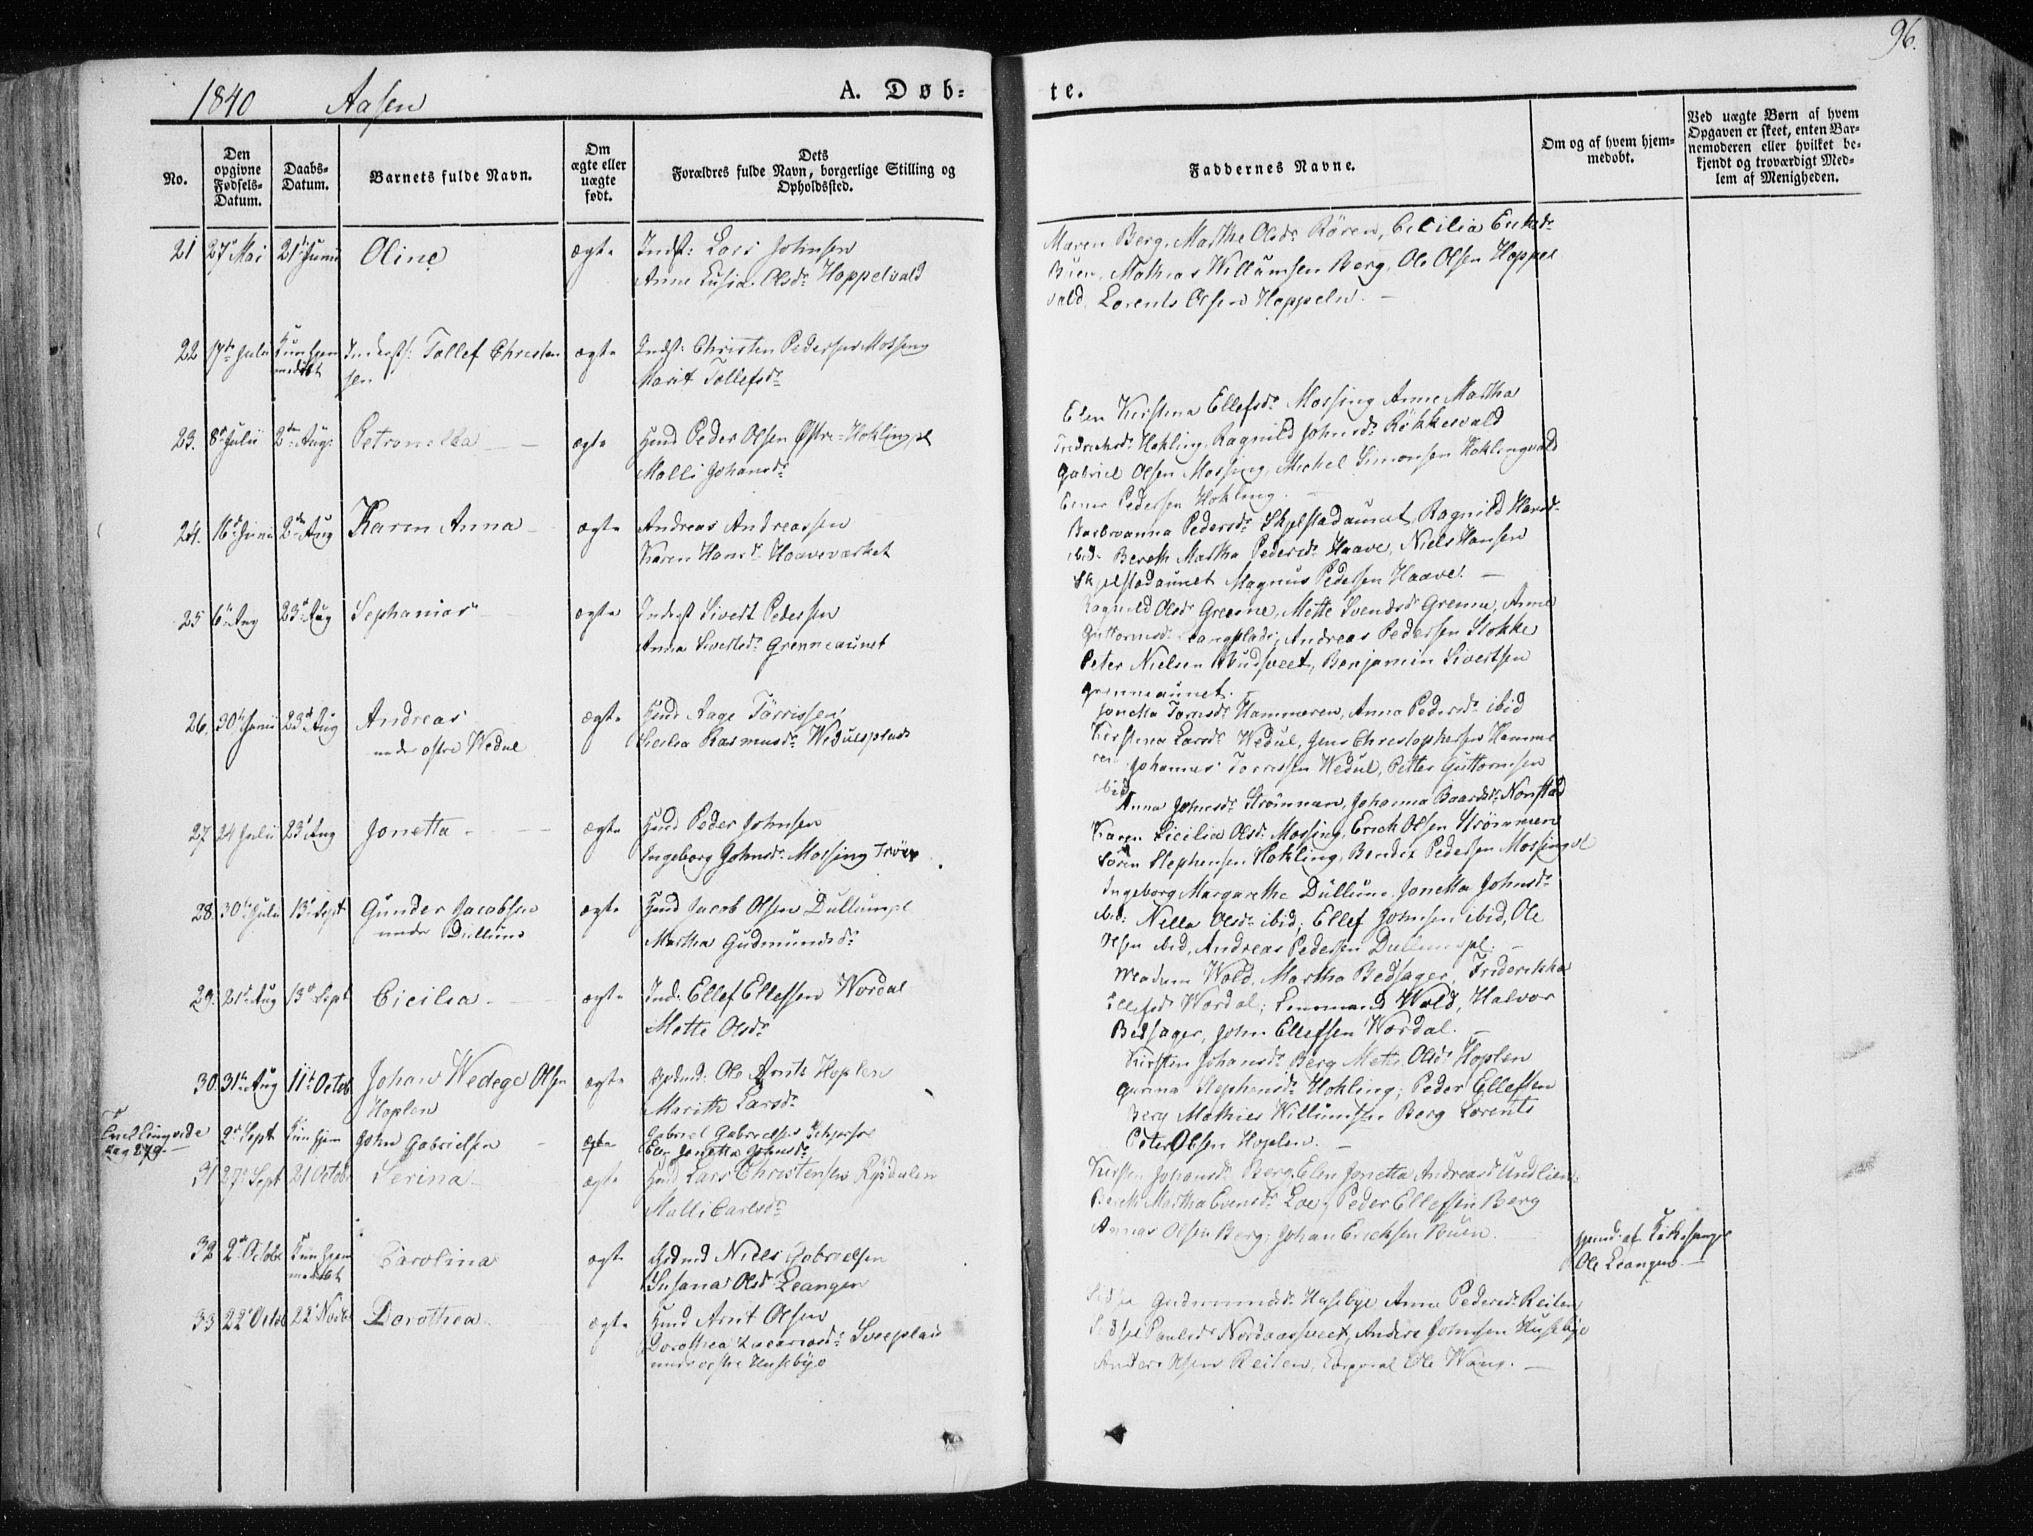 96.
1840 Aasen A. Døb- te.
No.
Den
opgivne
Fødsels-
Datum.
Daabs-
Datum.
Barnets fulde Navn.
Om
ægte eller
uægte
født.
Dets
Forældres fulde Navn, borgerlige Stilling og
Opholdssted.
Faddernes Navne.
Om og af hvem hjem-
medøbt.
Ved uægte Børn af hvem
Opgaven er skeet, enten Bar-
nemoderen eller hvilket be-
kjendt og troværdigt Med-
lem af Menigheden.
21 27 Mai 21 Junii Oline ægte Indst: Lars Johnsen
Anne Lusia Olsdr Hoppelvald
Maren Berg, Marthe Olsdr Rören, Cicilia
Buen, Mathias Willumsen Berg, Ole Olsen Hoppel
vald Lorents Olsen Hoppeln. -
22 17de Julii Kun hjem
medøbt Tollef Christen
sen ægte Indst: Christen Pedersen Mossing
Marit Tollefsdr
23. 8de Julii 2den Aug: Petronella ægte Peder Olsen Østre-Hoklingpl
Malli Johansdr
Elen Kirstina Ellefsdr Mossing Anne Martha
Hokling, Ragnild Johnsdr Røkkesvald
Gabriel Olsen Mossing, Michel Simonsen Hoklingvald
Pedersen Hokling. -
24. 16de Junii 2den Aug Karen Anna ægte Andreas Andreassen
Karen Hansdr Haaveværket
Barbroanna Pedersdr Skjelstadaunet, Ragnild Hansdr
ibid: Bereth Martha Pedersdr Haave, Niels Hansen
Skjelstadaunet Magnus Pedersen Haave. -
25 6te Aug 23de Aug Sephanias ægte Inderst Sivert Pedersen
Anna Sivertsdr Grenneaunet
Ragnild Olsdr Grenne, Mette Svendsdr Grenne, Anne
Guttormsdr Langplads, Andreas Pedersen Stokke
Peter Nielsen Rudsveet, Benjamin Sivertsen
Grenneaunet.
26. 30te Junii 23de Aug Andreas
under østre Wedul ægte Aage Tørrissen
Rasmusdr Wedulsplads
Jonetta Hammeren, Anna Pedersdr ibid
Kirstina Larsdr Wedul, Jens Christophersen Hamme
ren Johannes Torressen Wedul, Petter Guttormsen
ibid
27. 24 Julii 23 Aug Jonetta ægte Peder Johnsen
Ingeborg Johnsdr Mossing Trøen
Anna Johnsdr Strömmen, Johanna Baardsdr Norstad
Karen Sicilia Olsdr Mossing, Erich Olsen Strömmen
Sören Stephensen Hokling, Bendix Pedersen Mossingpl
28. 30te Julii 13 Sept Gunder Jacobsen
under Dullum ægte Jacob Olsen Dullumpl
Martha Gudmundsdr
Ingeborg Margarethe Dullum, Jonetta Johnsdr
ibid: Nilla Olsdr ibid, Ellef Johnsen ibid, Ole
Olsen ibid, Andreas Pedersen Dullumspl. -
29. 21de Aug 13 Sept Cicilia ægte Ind: Ellef Ellefsen Wordal
Mette Olsdr
Madam Wold, Martha Bedsager, Friderikka
Ellefsdr Wordal, Wold, Halvor
Bedsager, John Ellefsen Wordal.
30. 31te Aug 11te Octob Johan Wedege Olsen
Hoplen ægte Ole Arnts Hoplen
Marith Larsdr
Kirsten Johansdr Berg Mette Olsdr Hoplen
Gurina Stephensdr Hokling, Peder Ellefsen
Berg Mathies Willumsen Berg Lorents
Peter Olsen Hoplen. -
Pag 279. 2de Sept Kun hjem John Gabrielsen ægte Gabriel Gabrielsen
Jonetta Johnsdr
31 27 Sept 21 Octobr Serina ægte Lars Christensen Rygdalen
Malli Carlsdr
Kirsten Johansdr Berg, Elen Jonetta Andreasdr Undlien
Bereth Martha Evensdr Loe, Peder Ellefsen Berg
Olsen Berg, Johan Erichsen Buen.
32 2de Octobr Kun hjem
medøbt Carolina ægte Niels Gabrielsen
Susana Olsdr Leangen
af Kirkesanger
Ole Leangen. -
33 22de Octobr 22 Novbr Dorothea ægte Arnt Olsen
Dorothea Zacariasdr Sveeplads
under østre Husebye
Gudmundsdr Husebye Anne Pedersdr Reiten
Paulsdr Nordaasveet, Anders Johnsen Husebye
Anders Olsen Reiten, Corporal Ole Wang. -